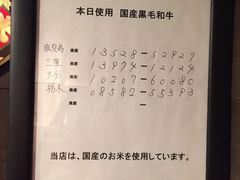 本日使用 国産黒毛和牛
鹿児島 県産 13528－52927
三重 県産 13974－12124
大分 県産 10207－60080
栃木 県産 08582－55393
県産 －
当店は、国産のお米を使用しています。